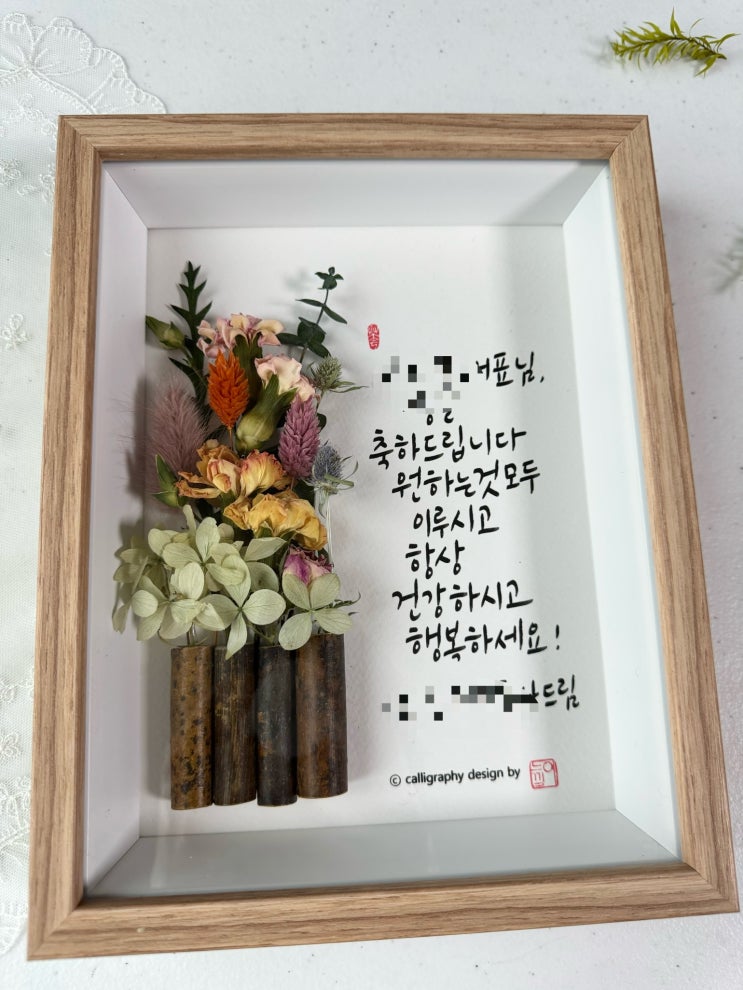 표님,
축하드립니다
원하는것모두
이루시고
항상
건강하시고
행복하세요!
드림
© calligraphy design by